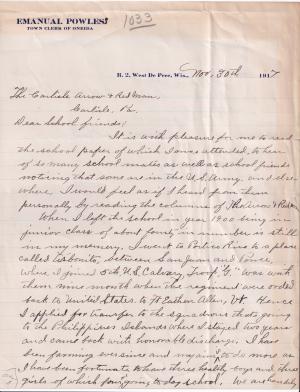 EMANUAL POWLESS
TOWN CLERK OF ONEIDA
1033
R. 2, West De Pere, Wis., Nov. 30th 1917
The Carlisle Arrow & Redman,
Carlisle, Pa.
Dear School friends:
It is with pleasure for me to read
the school paper of which I once attended, to hear
of so many school mates as well as school friends
noticing that some are in the U.S. Army, and else
where. I would feel as if I heard from them
personally by reading the columns of The Arrow & Redman
When I left the school in year 1900 being in
junior class of about forty in number is still
in my memory. I went to Porto Rico to a place
called Aibonito, between San Juan and Ponce,
where I joined 5th U.S. Calvary Troop "G" was with
them nine month when the regiment were ordered
back to United States. to Ft. Ethan Allen, Vt. Hence
I applied for transfer to the squadrons that going
to the Philippines Islands where I stayed two years
and came back with honorable discharge. I have
been farming ever since and to do more as
I have been fortunate to have three health boys and three
girls of which four going to day school. We are